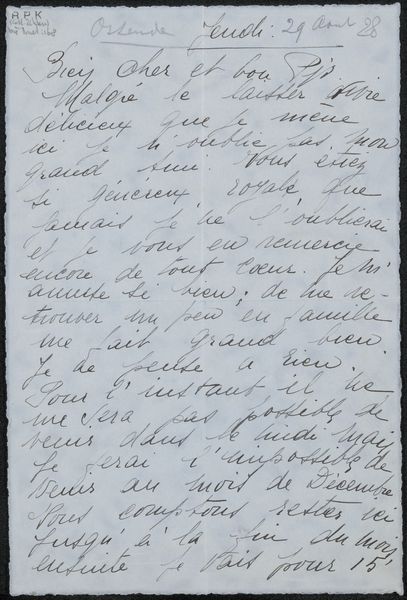 R.P.K.
Ostende Jeudi. 29 Aout 28
Bien cher et bon
Malgré le laisser vivre
délicieux que je mène
ici je n'oublie pas mon
grand ami. Vous étiez
si généreux, royale que
jamais je ne l'oublierai
et je vous en remercie
encore de tout coeur. Je m'
amuse si bien; de me re-
trouver un peu en famille
me fait grand bien
Je ne pense a rien.
Pour l'instant il ne
me sera pas possible de
venir dans le midi mais
je ferai l'impossible de
venir au mois de Décembre
Nous comptons rester ici
jusqu'à la fin du mois,
ensuite je vais pour 15